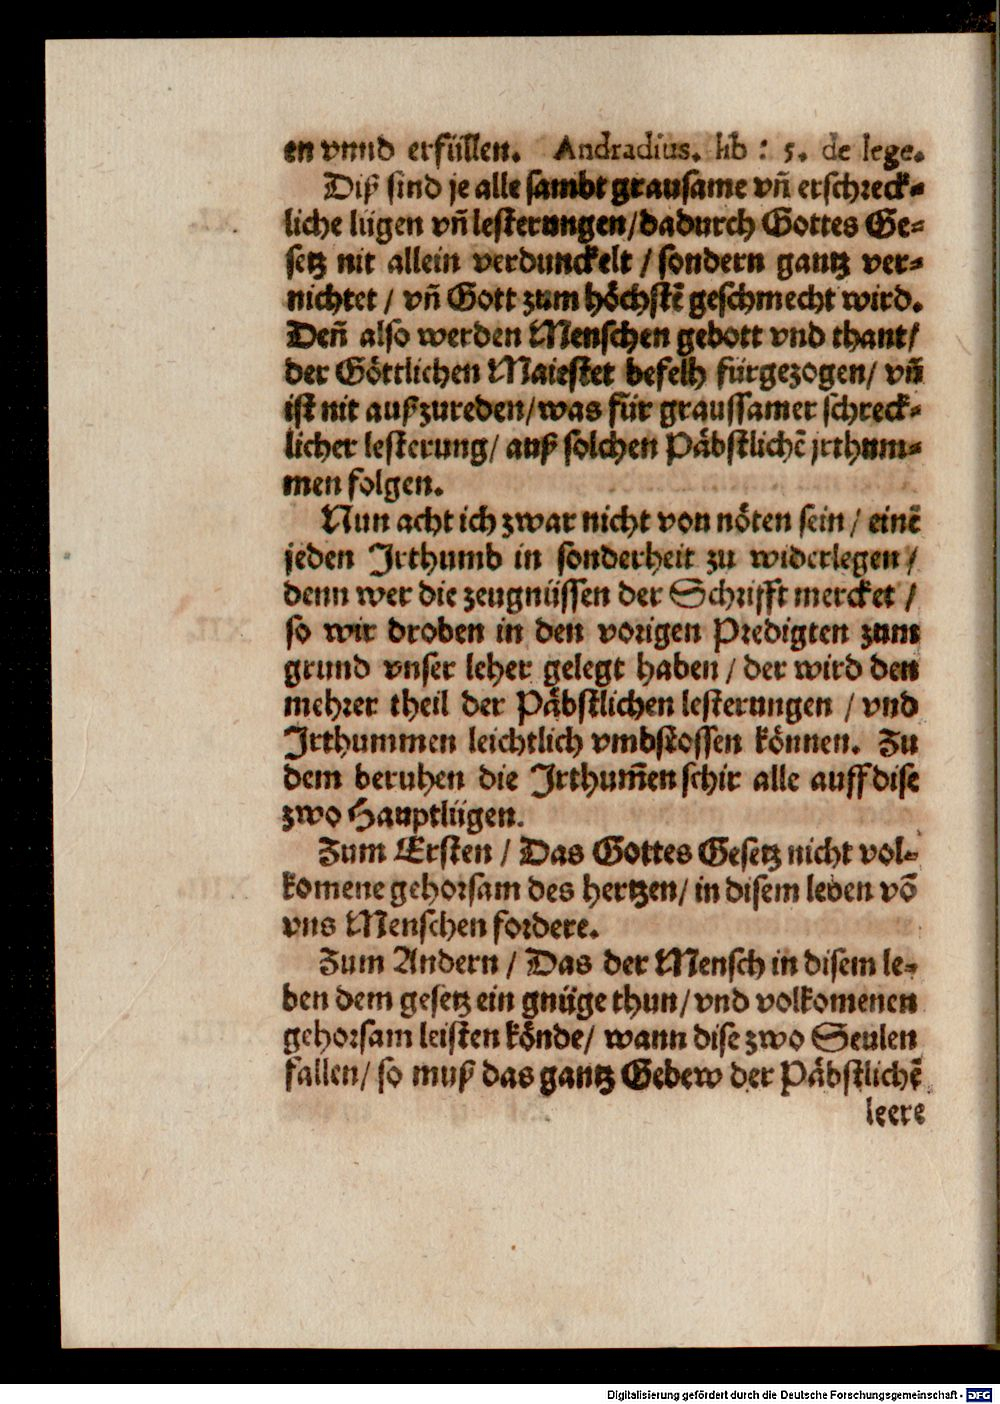 en vnnd erfüllen. Andradius. lib : 5. de lege.
Diß sind je alle sambt grausame vñ erschreck-
liche lügen vñ lesterungen/dadurch Gottes Ge-
setz nit allein verdunckelt / sondern gantz ver-
nichtet / vñ Gott zum höchstē geschmecht wird.
Deñ also werden Menschen gebott vnd thant/
der Göttlichen Maiestet befelh fürgezogen/ vñ
ist nit außzureden/was für graussamer schreck-
licher lesterung/ auß solchen Päbstlichē jrthum-
men folgen.
Nun acht ich zwar nicht von nöten sein / einē
jeden Irthumb in sonderheit zu widerlegen /
denn wer die zeugnüssen der Schrifft mercket /
so wir droben in den vorigen Predigten zum
grund vnser leher gelegt haben / der wird den
mehrer theil der Päbstlichen lesterungen / vnd
Irthummen leichtlich vmbstossen können. Zu
dem beruhen die Irthum̄en schir alle auff dise
zwo Hauptlügen.
Zum Ersten / Das Gottes Gesetz nicht vol-
komene gehorsam des hertzen/ in disem leben vō
vns Menschen fordere.
Zum Andern / Das der Mensch in disem le-
ben dem gesetz ein gnüge thun/ vnd volkomenen
gehorsam leisten könde/ wann dise zwo Seulen
fallen/ so muß das gantz Gebew der Päbstlichē
leere
Digitalisierung gefördert durch die Deutsche Forschungsgemeinschaft - DFG